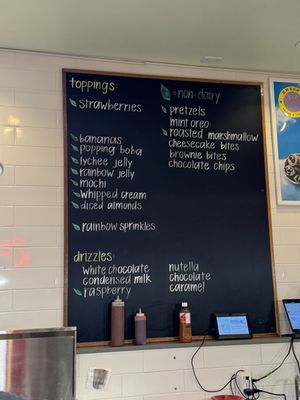 toppings:
strawberries
bananas
popping boba
lychee jelly
rainbow jelly
mochi
whipped cream
diced almonds
rainbow sprinkles
=non-dairy
pretzels
mint oreo
roasted marshmallow
cheesecake bites
brownie bites
chocolate chips
drizzles:
white chocolate
condensed milk
raspberry
nutella
chocolate
caramel